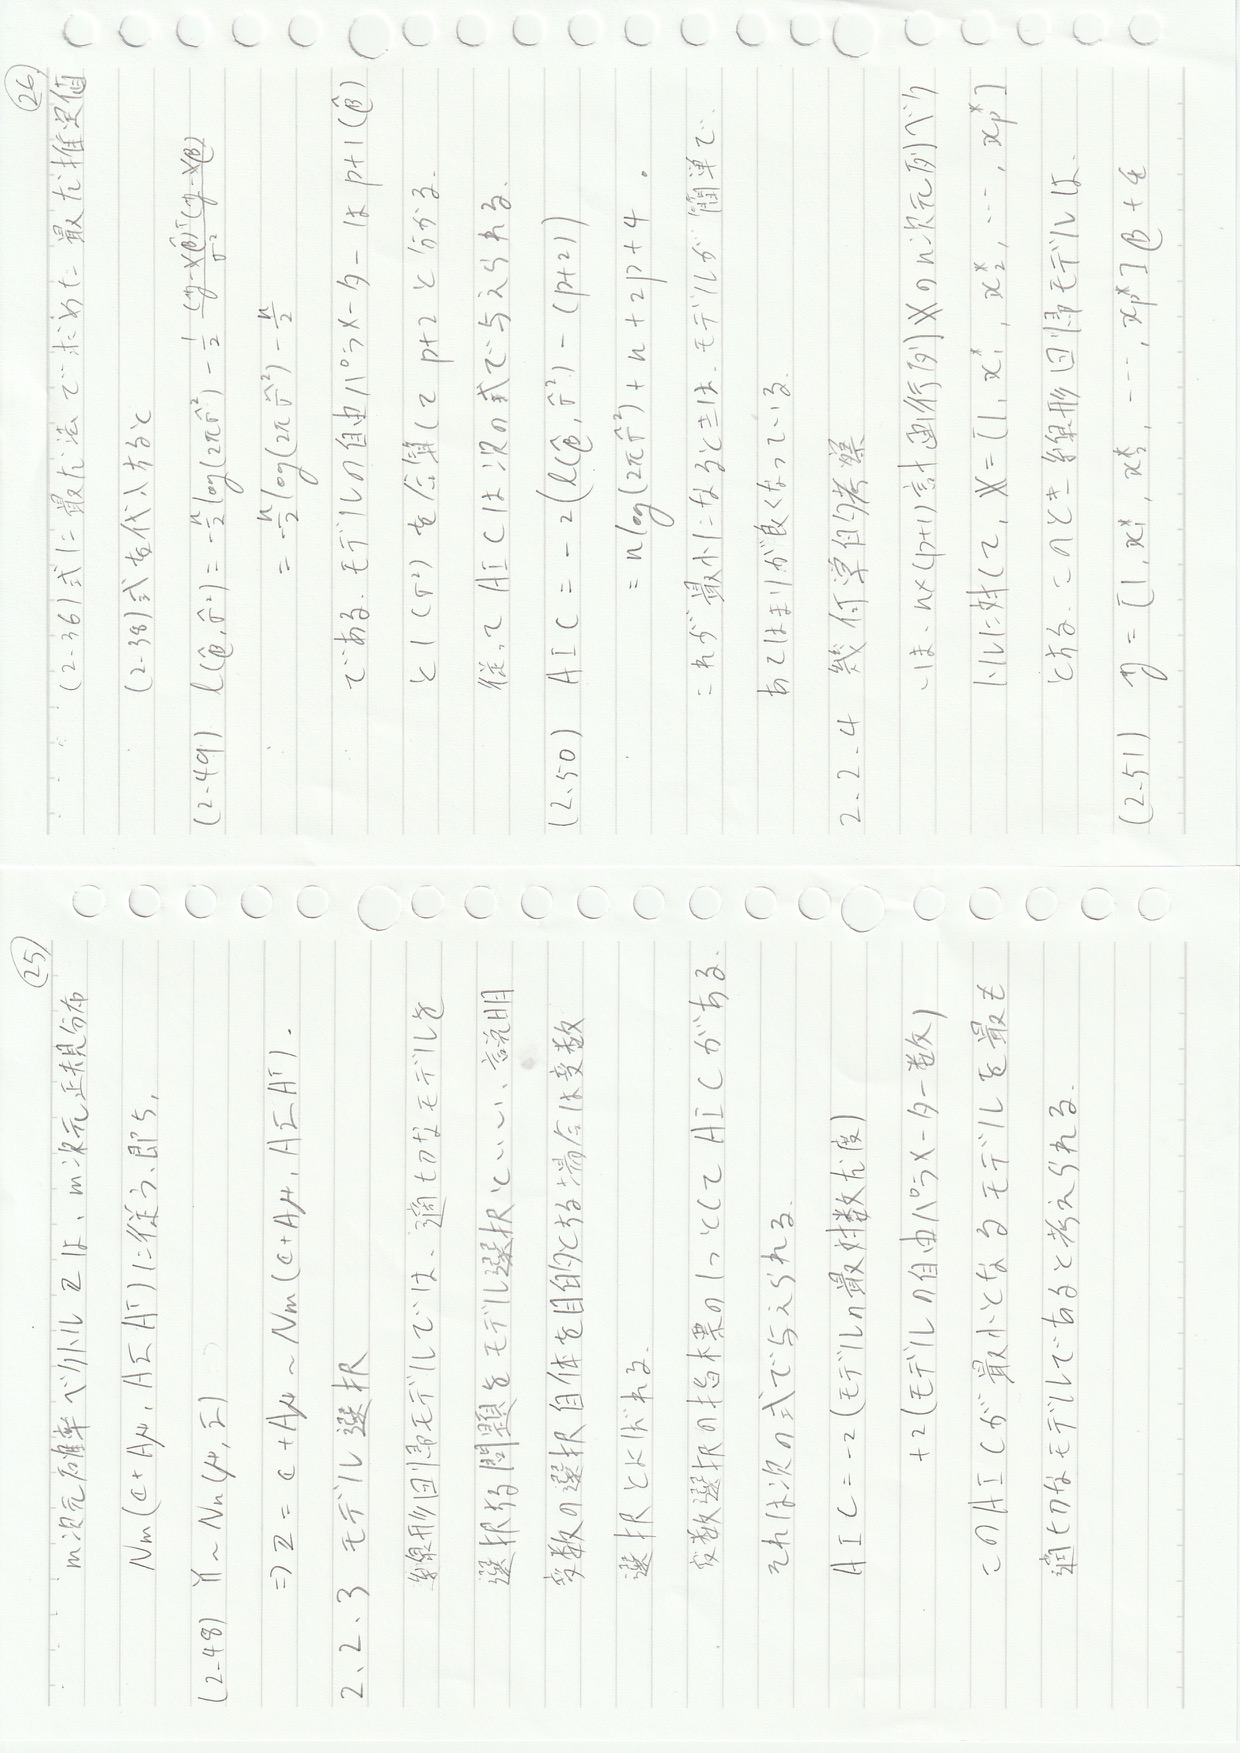 (25)
m次元確率ベクトル Z は、m次元正規分布
Nm(c+Aμ, AΣA^T)に従う、即ち,
(2-48) Y ~ Nn(μ, Σ)
⇒ Z = c + Aμ ~ Nm(c+Aμ, AΣA^T).
2.2.3 モデル選択
線形回帰モデルでは、適切なモデルを
選択する問題をモデル選択といい、説明
変数の選択自体を目的とする場合は変数
選択とよばれる.
変数選択の指標の1つとして AIC がある.
それは次の式で与えられる.
AIC = -2(モデルの最対数尤度)
+2(モデルの自由パラメーター数)
このAICが最小となるモデルを最も
適切なモデルであると考えられる.
(26)
(2.36)式に最尤法で求めた最尤推定値
(2-38)式を代入すると
(2-49) l(β̂, σ̂²) = -n/2 log(2πσ̂²) - 1/2 (y-Xβ̂)^T(y-Xβ)/σ²
= -n/2 log(2πσ̂²) - n/2
である. モデルの自由パラメーターは p+1(β̂)
と1(σ²)を合算して p+2 と分かる.
従って AICは次の式で与えられる.
(2.50) AIC = -2(l(β̂, σ̂²) - (p+2))
= n log(2πσ̂²) + n + 2p + 4 .
これが最小になるときは、モデルが簡単で
あてはまりが良くなっている.
2.2.4 幾何学的考察
いま、n×(p+1)計画行列Xのn次元列ベク
トルに対して, X = [1, x₁*, x₂*, ..., xp*]
とする. このとき線形回帰モデルは.
(2.51) y = [1, x₁*, x₂*, ..., xp*]β + ε